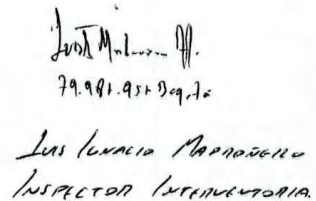 79.981.951 Bogotá
Luis Ignacio Madroñero
Inspector Interventoria.